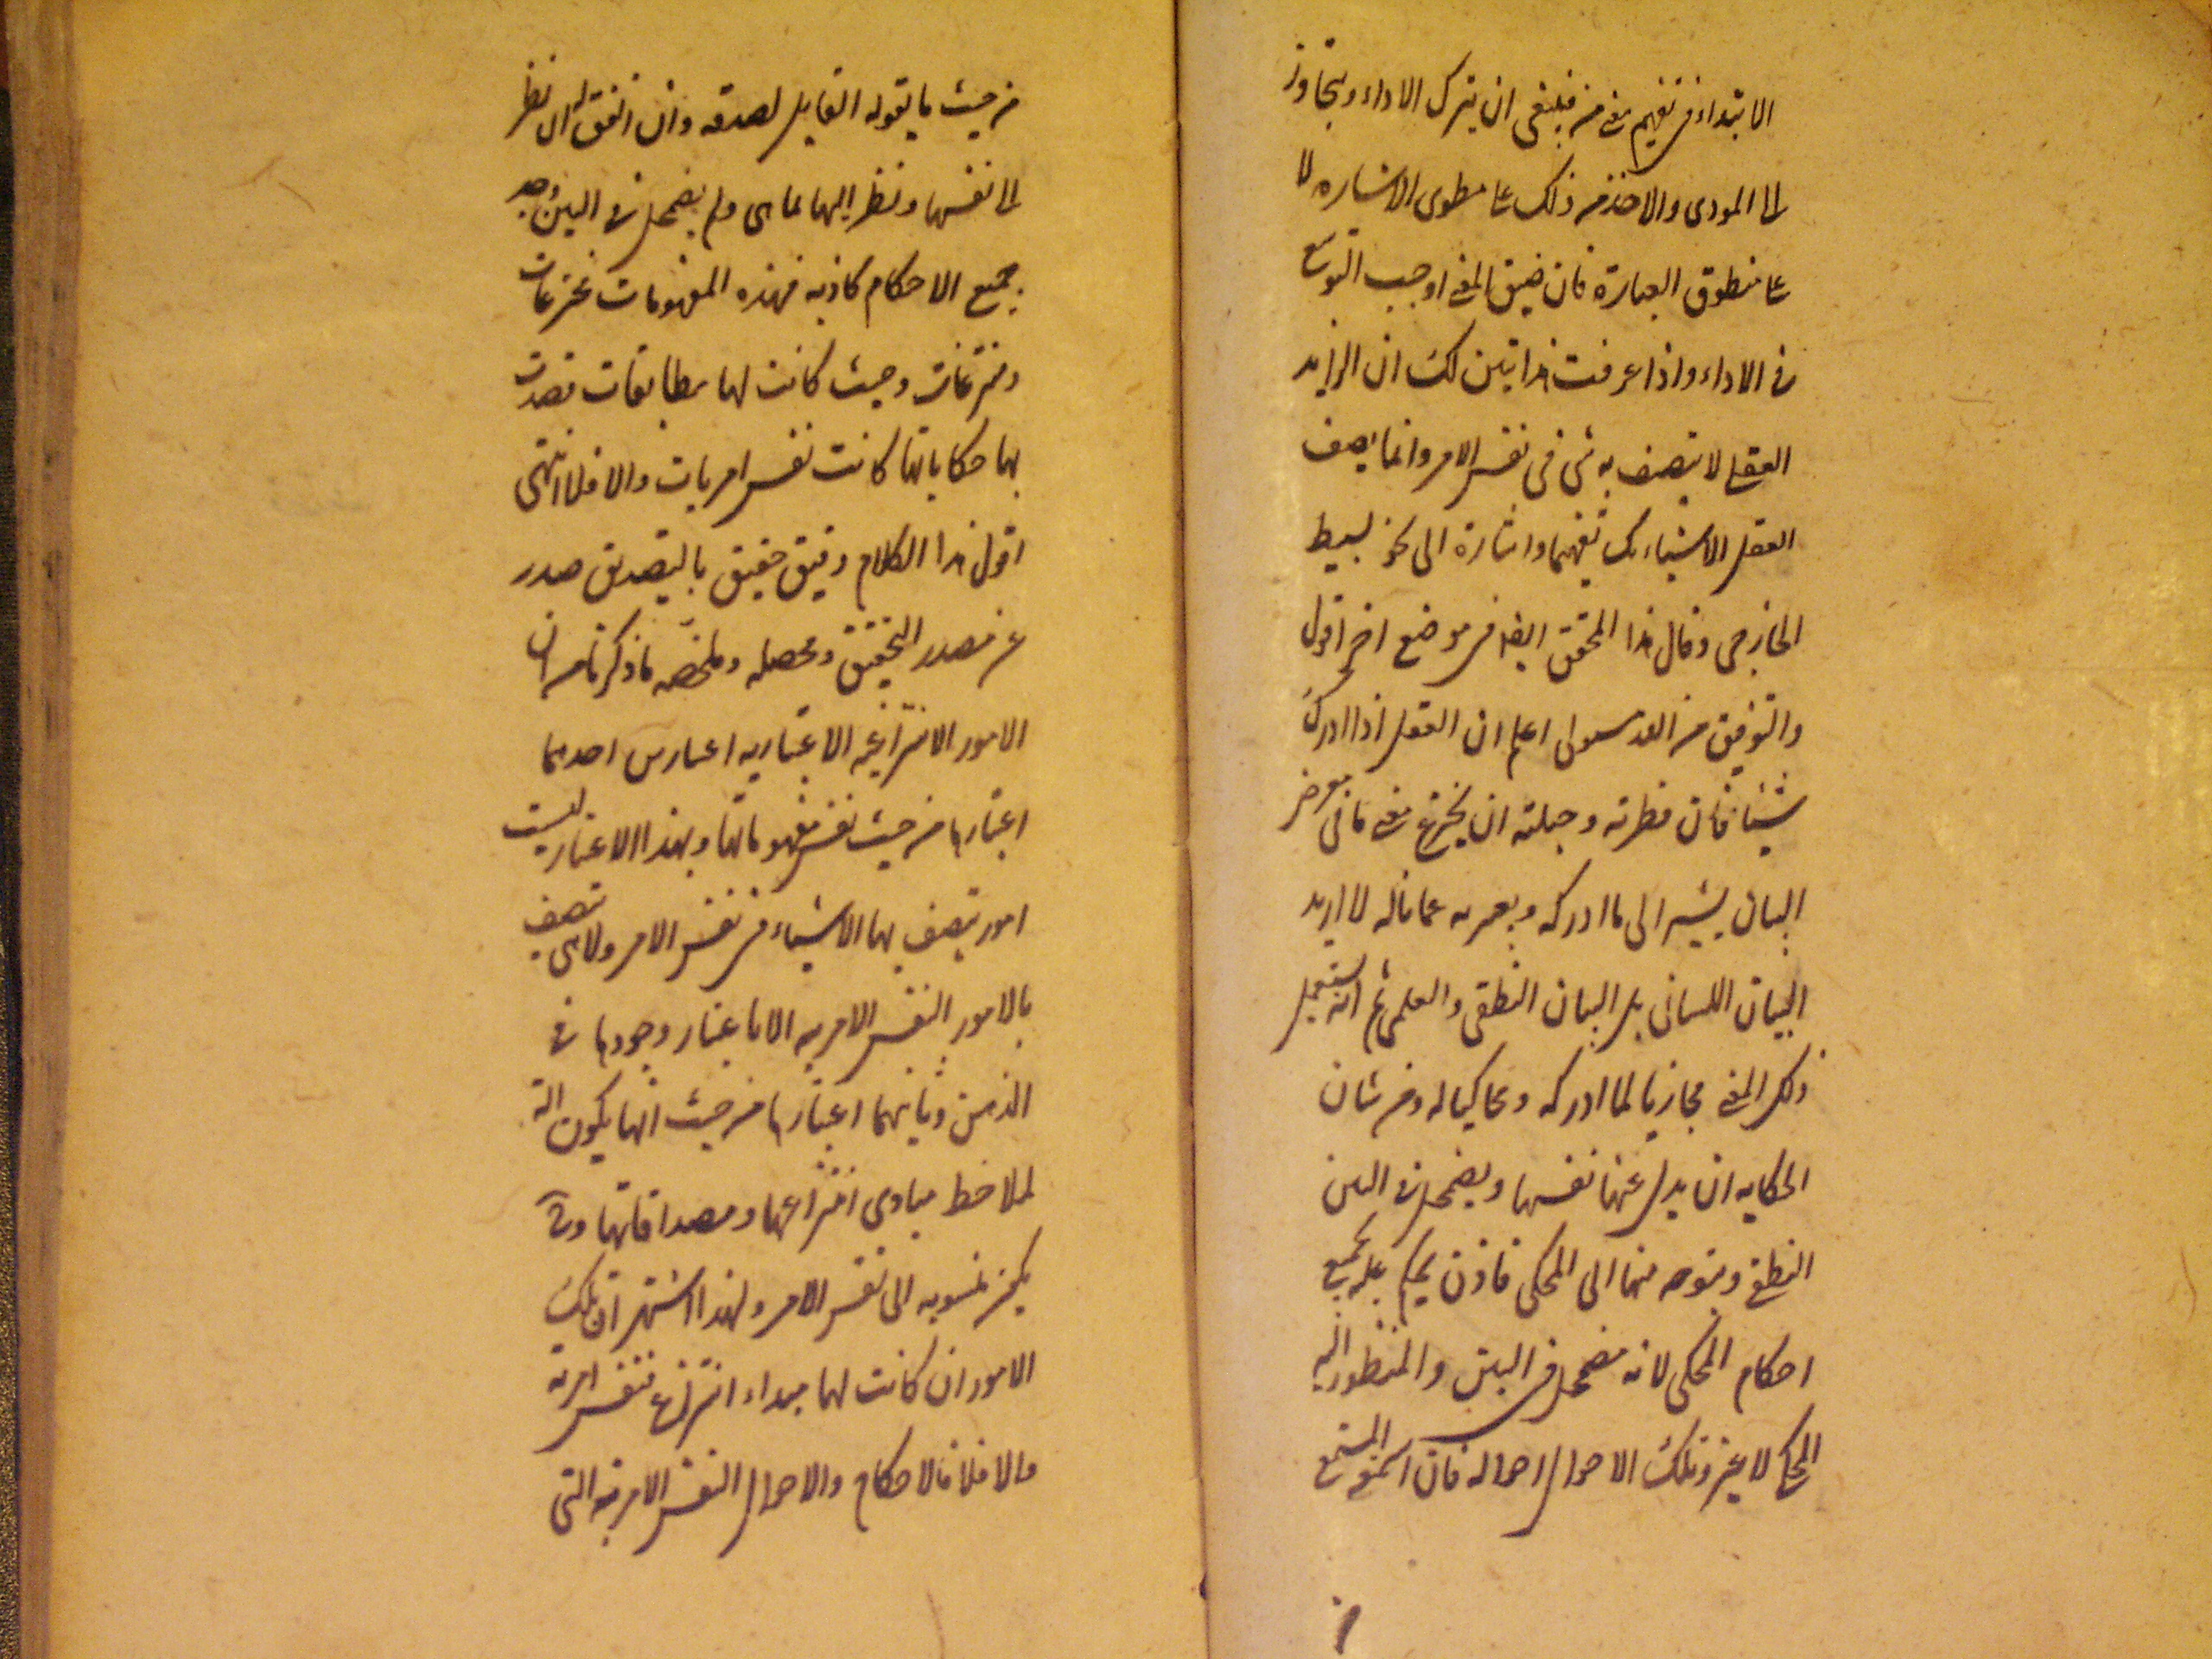 الابتداء فى تفهيم معنى من فينبغى ان يترك الاداء ويتجاوز
الى المودى والاخذ من ذلك على مطوى الاشاره لا
على منطوق العبارة فان ضيق المعنى اوجب التوسع
فى الاداء واذا عرفت هذا تبين لك ان الزايد
العقلى لا يتصف به شى فى نفس الامر وانما يصف
العقل الاشياء بك تفهيما واشارة الى نحو بسيط
الخارجى وقال هذا المحقق ايضا فى موضع اخر اقول
والتوفيق من الله اعلم ان العقل اذا ادرك
شيئا فان فطرته وجبلته ان يخترع معنى ما فى معرض
البيان يشير الى ما ادركه ويعبر به عما ناله لا اريد
البيان اللسانى بل البيان النطقى والعلمى ثم انه يستعمل
ذلك المعنى مجازيا لما ادركه ومحاكيا له ومن شان
الحكايه ان يدل عنها نفسها ويضمحل فى البين
النطق ويتوجه منها الى المحكى فاذن يحكم عليه بجميع
احكام المحكى لانه مضمحل فى البين والمنظور اليه
المحكى لا غير وتلك الاحوال احواله فان استمع المستمع
من حيث ما يقوله القايل لصدقه وان اتفق له ان نظر
الى نفسها ونظر اليها بما هى ولم يضمحل فى البين وجد
جميع الاحكام كاذبه فهذه المفهومات مخترعات
ومنتزعات وحيث كانت لها مطابقات قصدت
بها حكاياتها كانت نفس امريات والا فلا انتهى
اقول هذا الكلام دقيق حقيق بالتصديق صدر
عن مصدر التحقيق ومحصله وملخصه ما ذكرنا من ان
الامور الانتزاعيه الاعتباريه اعتبارين احدهما
اعتبارها من حيث نفس مفهوماتها وبهذا الاعتبار ليست
امور يتصف بها الاشياء فى نفس الامر ولا هى تتصف
بالامور النفس الامريه الا باعتبار وجودها فى
الذهن وثانيهما اعتبارها من حيث انها يكون الة
لملاحظ مبادى انتزاعها ومصداقاتها وح
يكون منسوبه الى نفس الامر ولهذا اشتهر ان تلك
الامور ان كانت لها مبداء انتزاع فنفس امرية
والا فلا فالاحكام والاحوال النفس الامرية التى